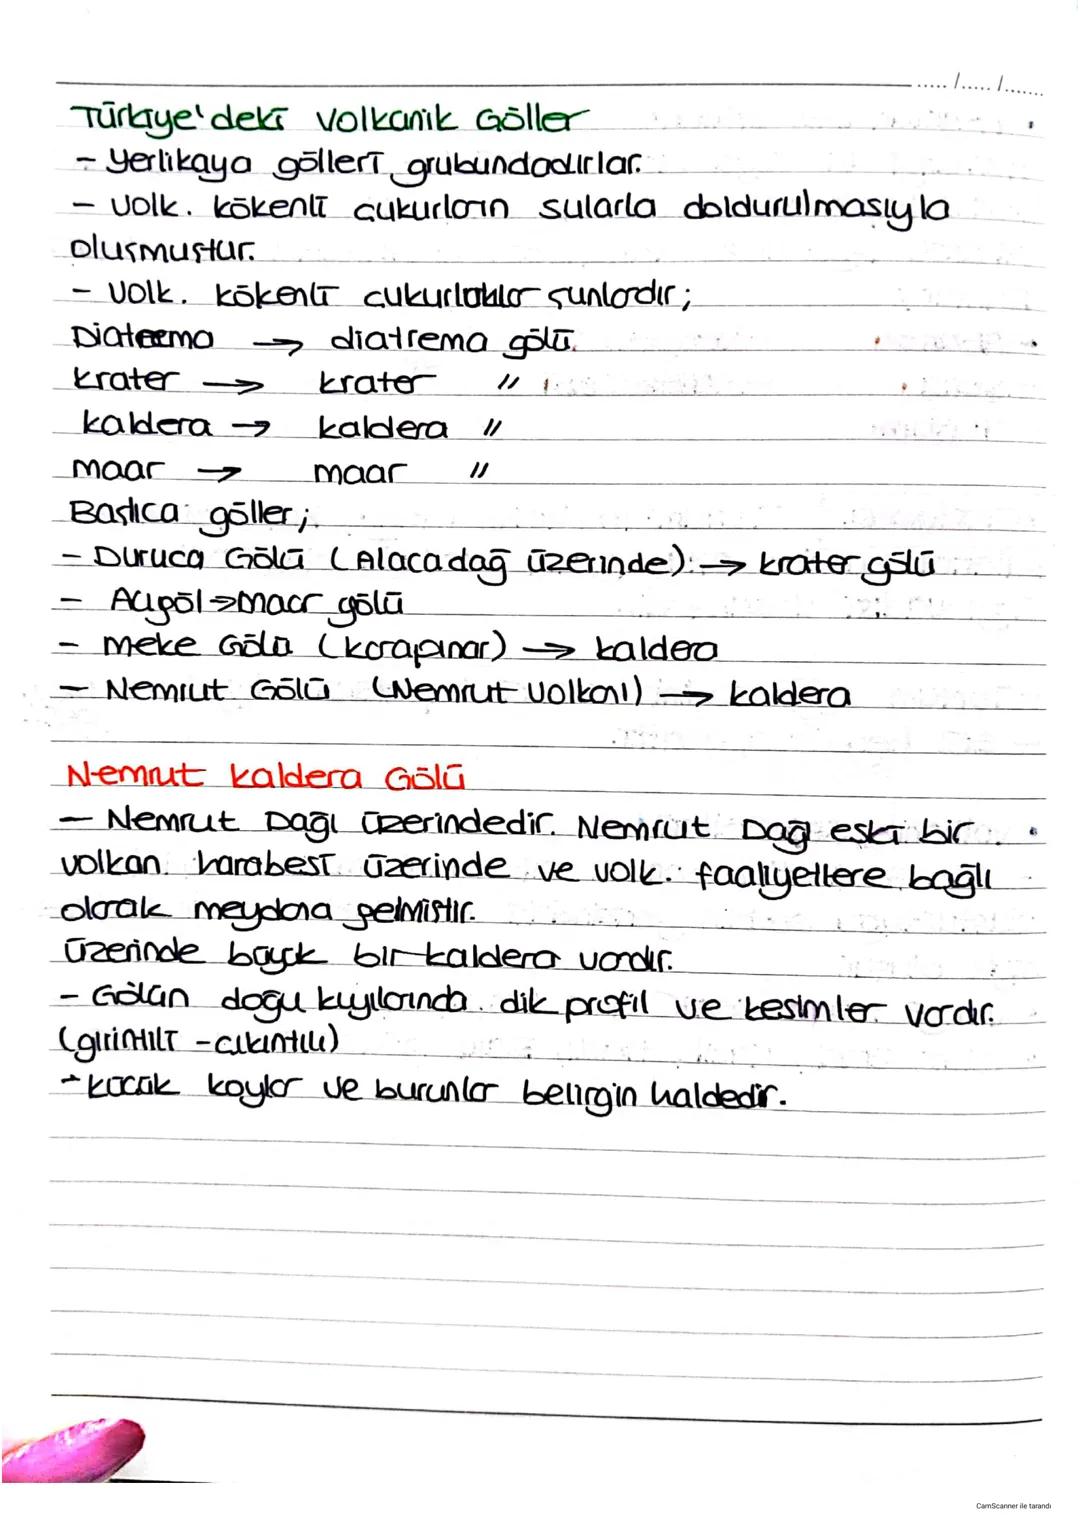 ..... /..... /.......
Türkiye'deki Volkanik Göller
- Yerlikaya gölleri grubundadırlar.
- Volk. kökenli çukurların sularla doldurulmasıyla
oluşmuştur.
- Volk. kökenli çukurluklar şunlardır;
Diatrema → diatrema gölü.
krater → krater "
kaldera → kaldera "
maar → maar "
Başlıca göller;
- Duruca Gölü (Alacadağ üzerinde) → krater gölü
- Acıgöl → maar gölü
- Meke Gölü (karapınar) → kaldera
- Nemrut Gölü (Nemrut Volkanı) → kaldera
Nemrut kaldera Gölü
- Nemrut Dağı üzerindedir. Nemrut Dağı eski bir
volkan harabesi üzerinde ve volk. faaliyetlere bağlı
olarak meydana gelmiştir.
üzerinde büyük bir kaldera vardır.
- Gölün doğu kıyılarında dik profil ve kesimler vardır.
(girintili - çıkıntılı)
- küçük koylar ve burunlar belirgin haldedir.
CamScanner ile tarandı